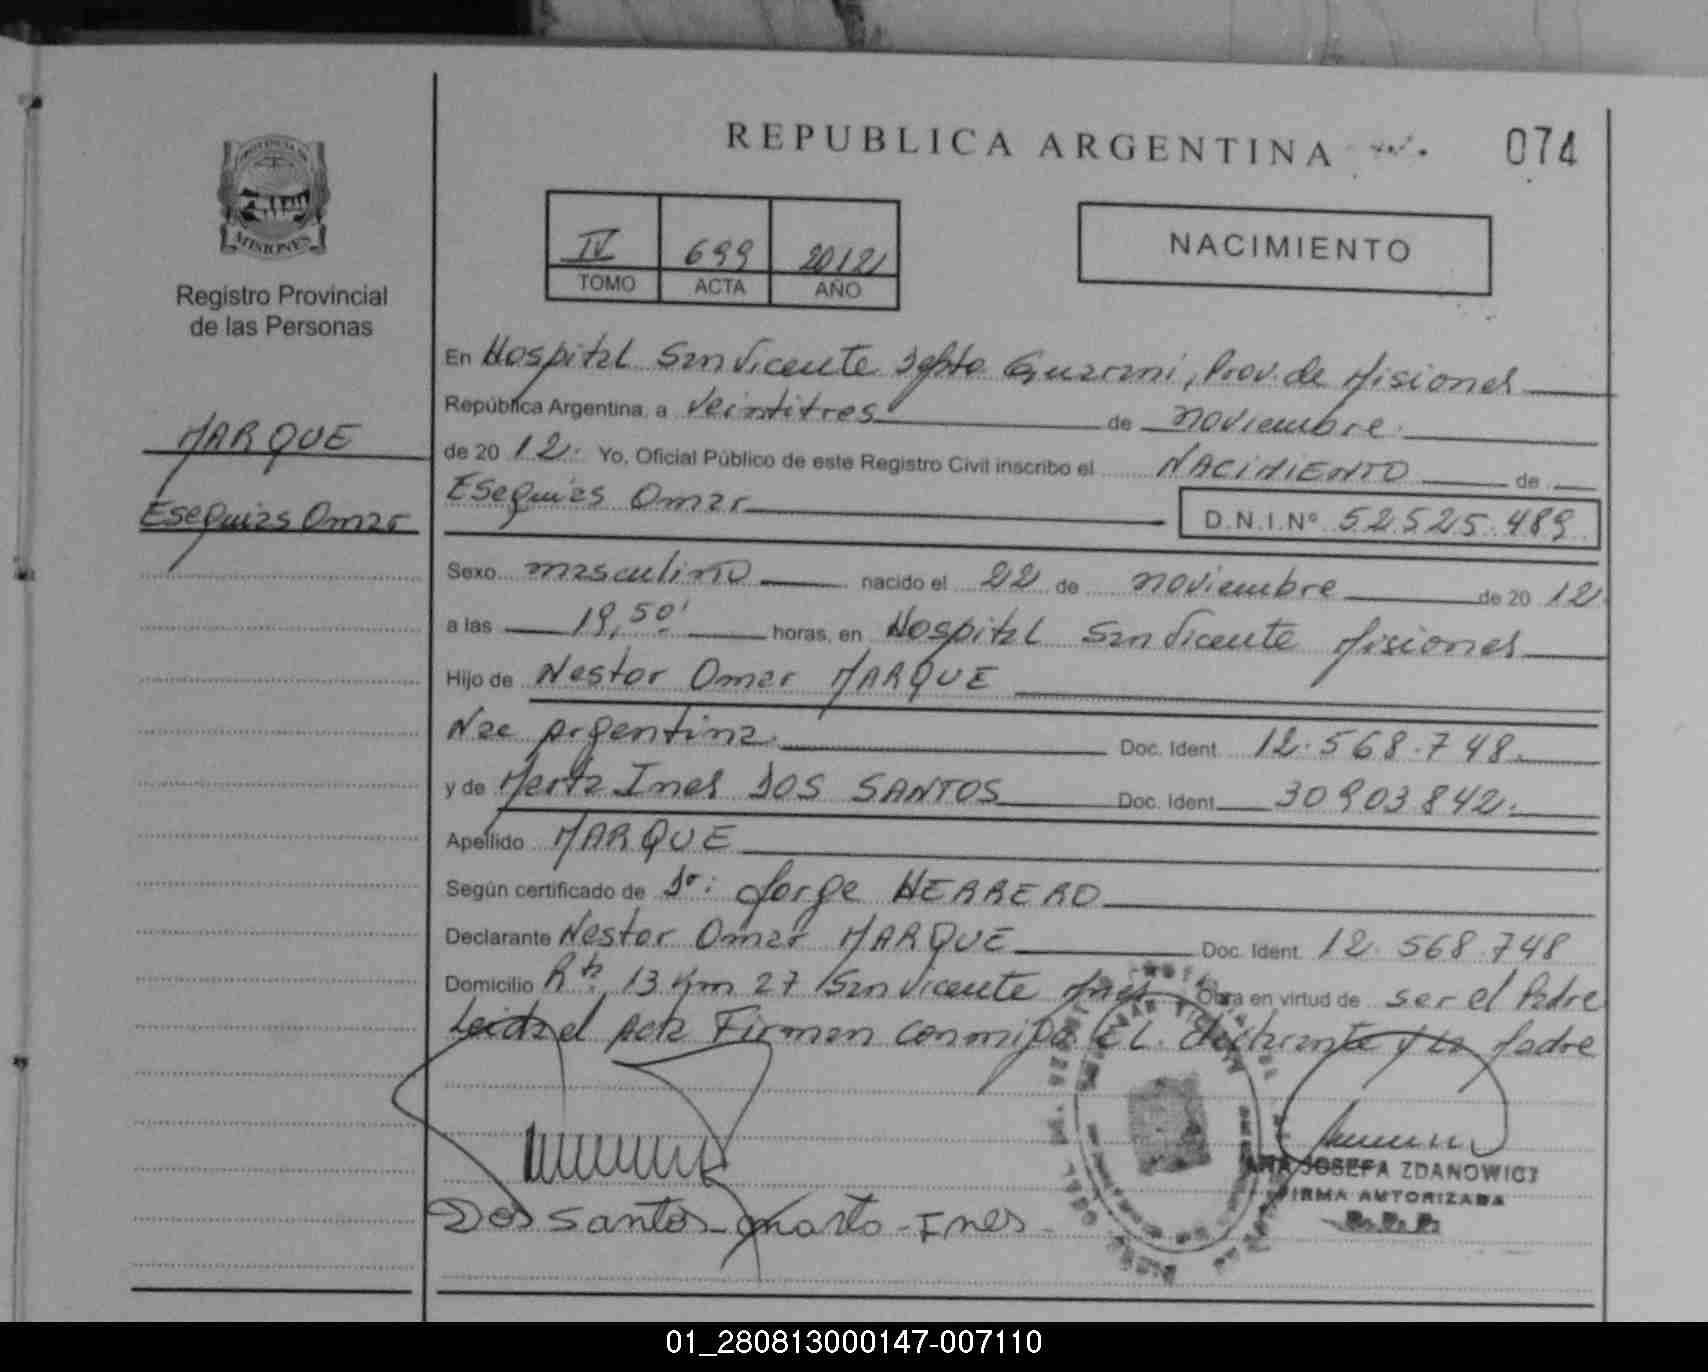 REPUBLICA ARGENTINA
074
PROVINCIA DE
MISIONES
Registro Provincial
de las Personas
IV 699 2012
TOMO ACTA AÑO
NACIMIENTO
MARQUE
Esequias Omar
En Hospital San Vicente Dpto Guarani, Prov. de Misiones
República Argentina, a veintitres de noviembre
de 20 12. Yo, Oficial Público de este Registro Civil inscribo el NACIMIENTO de
Esequias Omar D.N.I.Nº 52525.489
Sexo masculino nacido el 22 de noviembre de 20 12
a las 19,50' horas, en Hospital San Vicente Misiones
Hijo de Nestor Omar MARQUE
Nac Argentina. Doc. Ident. 12.568.748.
y de Marta Ines DOS SANTOS Doc. Ident. 30903842.
Apellido MARQUE
Según certificado de Dr: Jorge HERRERO
Declarante Nestor Omar MARQUE Doc. Ident. 12.568.748
Domicilio Rta 13 Km 27 San Vicente Mnes Obra en virtud de ser el Padre
Leida el Acta Firman conmigo EL declarante y la Madre
Dos Santos Marta-Ines
ANA JOSEFA ZDANOWICZ
FIRMA AUTORIZADA
01_280813000147-007110